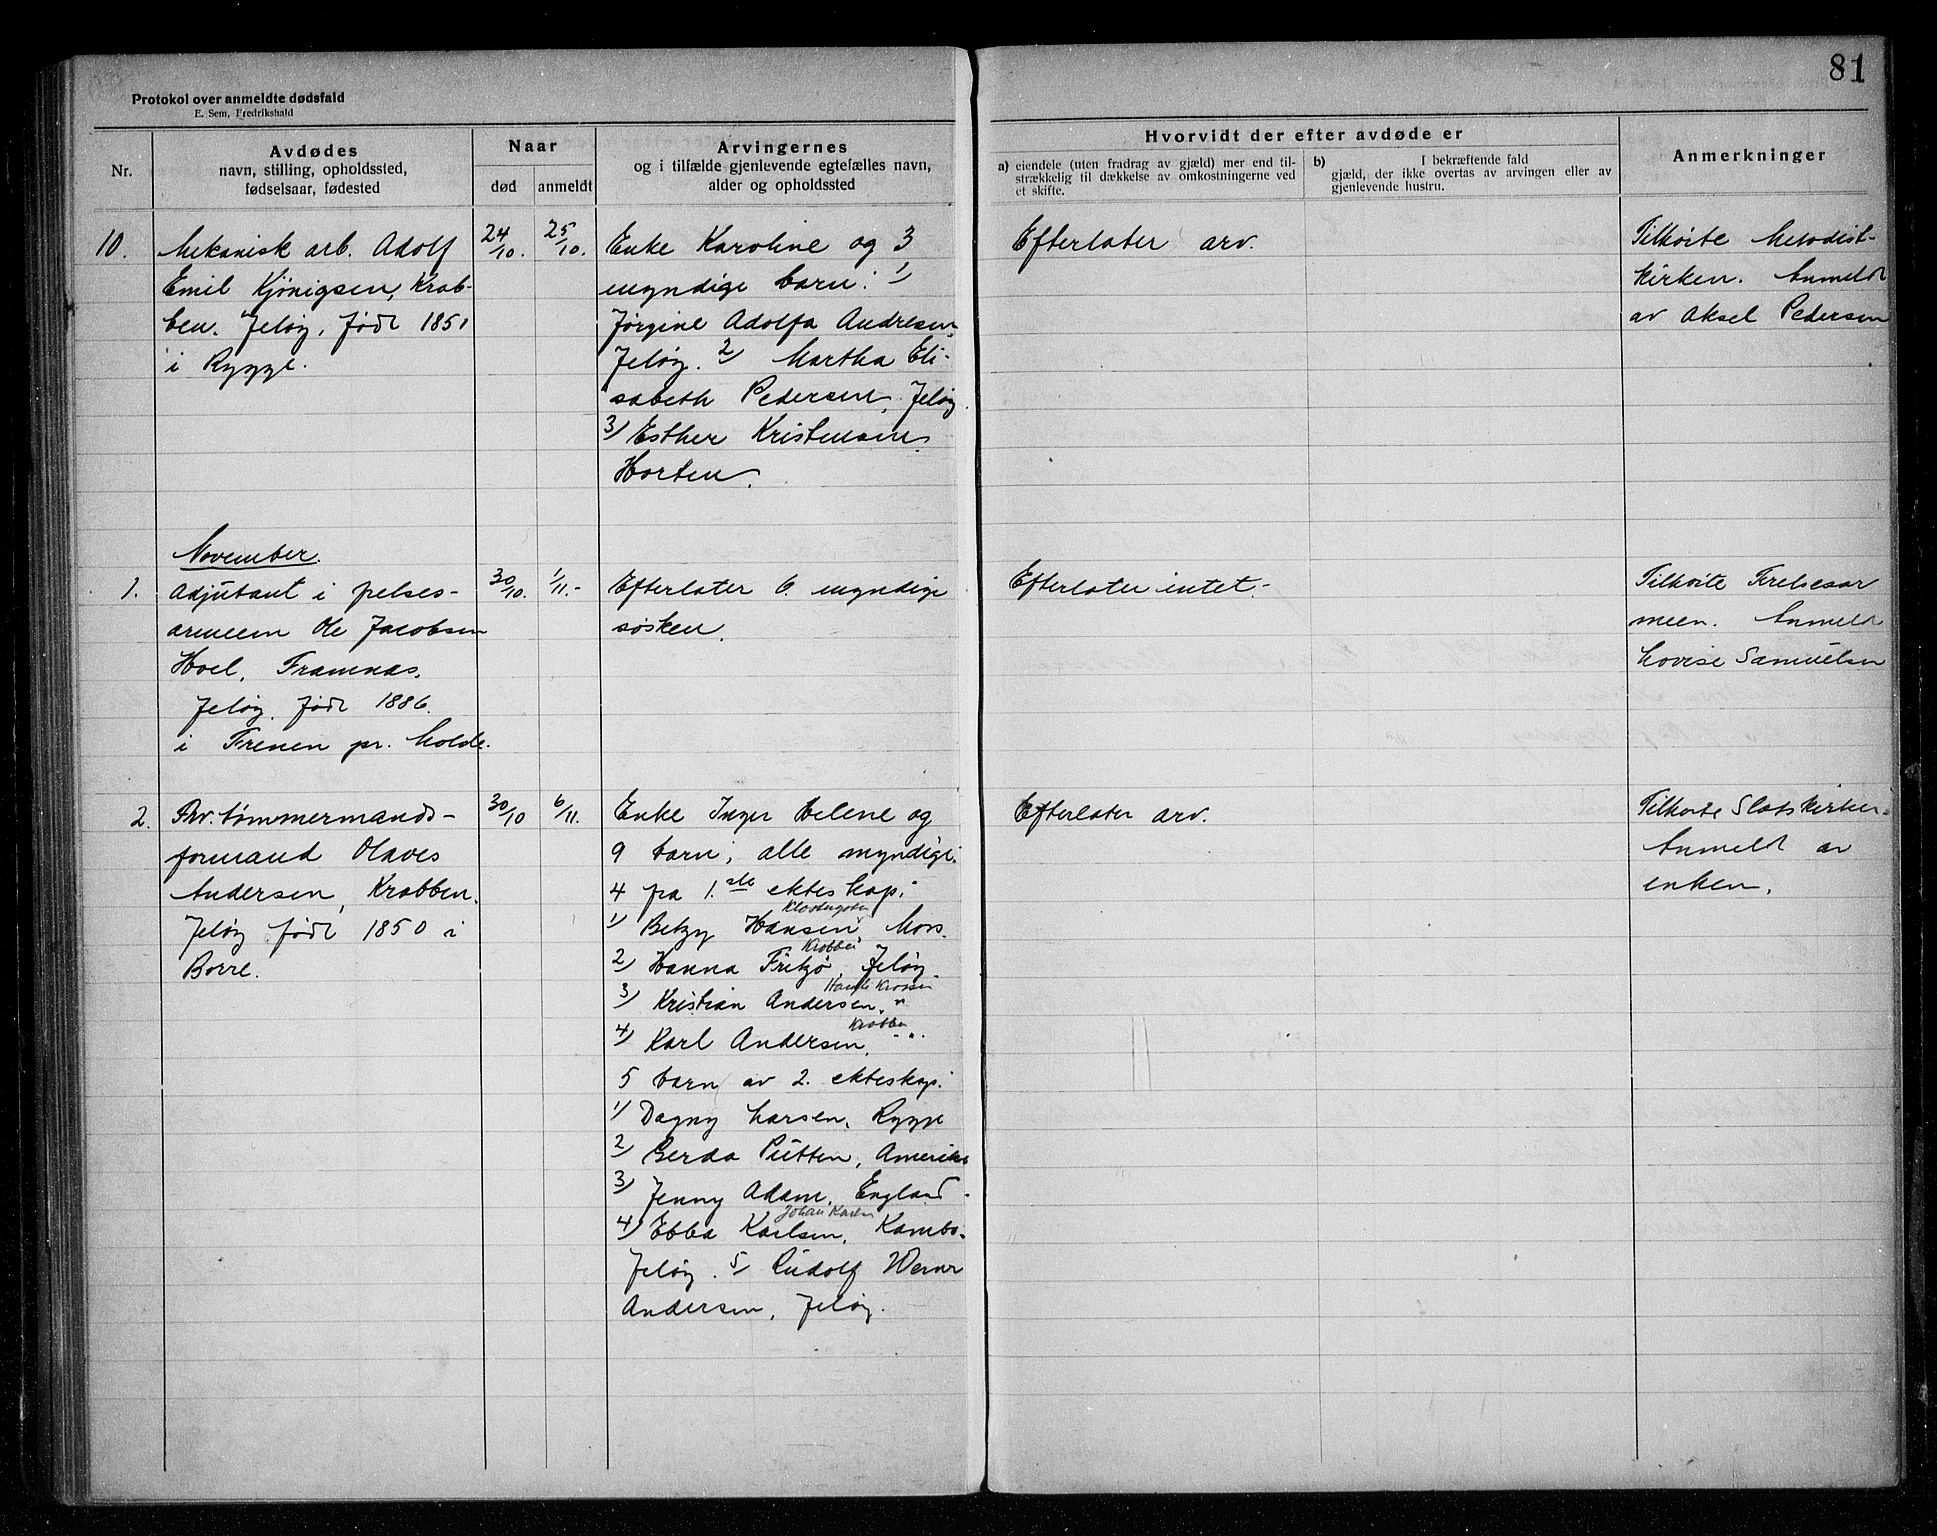 81
Protokol over anmeldte dødsfald
E. Sem, Fredrikshald
Nr.
Avdødes
navn, stilling, opholdssted,
fødselsaar, fødested
Naar
død
anmeldt
Arvingernes
og i tilfælde gjenlevende egtefælles navn,
alder og opholdssted
Hvorvidt der efter avdøde er
a) eiendele (uten fradrag av gjæld) mer end til-
strækkelig til dækkelse av omkostningerne ved
et skifte.
b) I bekræftende fald
gjæld, der ikke overtas av arvingen eller av
gjenlevende hustru.
Anmerkninger
10.
Mekanisk arb. Adolf
Emil Kjønigsen, Krab-
ben. Jeløy, født 1851
i Rygge.
24/10.
25/10.
Enke Karoline og 3
myndige barn: 1)
Jørgine Adolfa Andresen,
Jeløy. 2) Martha Eli-
sabeth Pedersen, Jeløy.
3) Esther Kristensen,
Horten.
Efterlater arv.
Tilhørte Metodist-
kirken. Anmeldt
av Aksel Pedersen
November.
1.
Adjutant i frelses-
armeen Ole Jacobsen
Hoel, Framnæs,
Jeløy, født 1886.
i Frenen pr. Molde.
30/10.
1/11.-
Efterlater 6 myndige
søsken.
Efterlater intet.-
Tilhørte Frelsesar
meen. Anmeld
Lovise Samuelsen
2.
Fhv. tømmermands-
formand Olaves
Andersen, Krabben,
Jeløy født 1850 i
Borre.
30/10
6/11.
Enke Inger Helene og
9 barn, alle myndige.
4 fra 1.ste ekteskap:
Klostergaten
1) Betzy Hansen, Mos.
Krabben
2) Hanna Fritzø, Jeløy.
3) Kristian Andersen, "
Krabben
4) Karl Andersen, - " -
5 barn av 2. ekteskap:
1) Dagny Larsen, Rygge
2) Gerda Pütten, Amerika
3) Jenny Adam, England.
Johan Karlsen
4) Ebba Karlsen, Kambo.
Jeløy. 5) Rudolf Werner
Andersen, Jeløy.
Efterlater arv.
Tilhørte Statskirken.
Anmeldt av
enken.